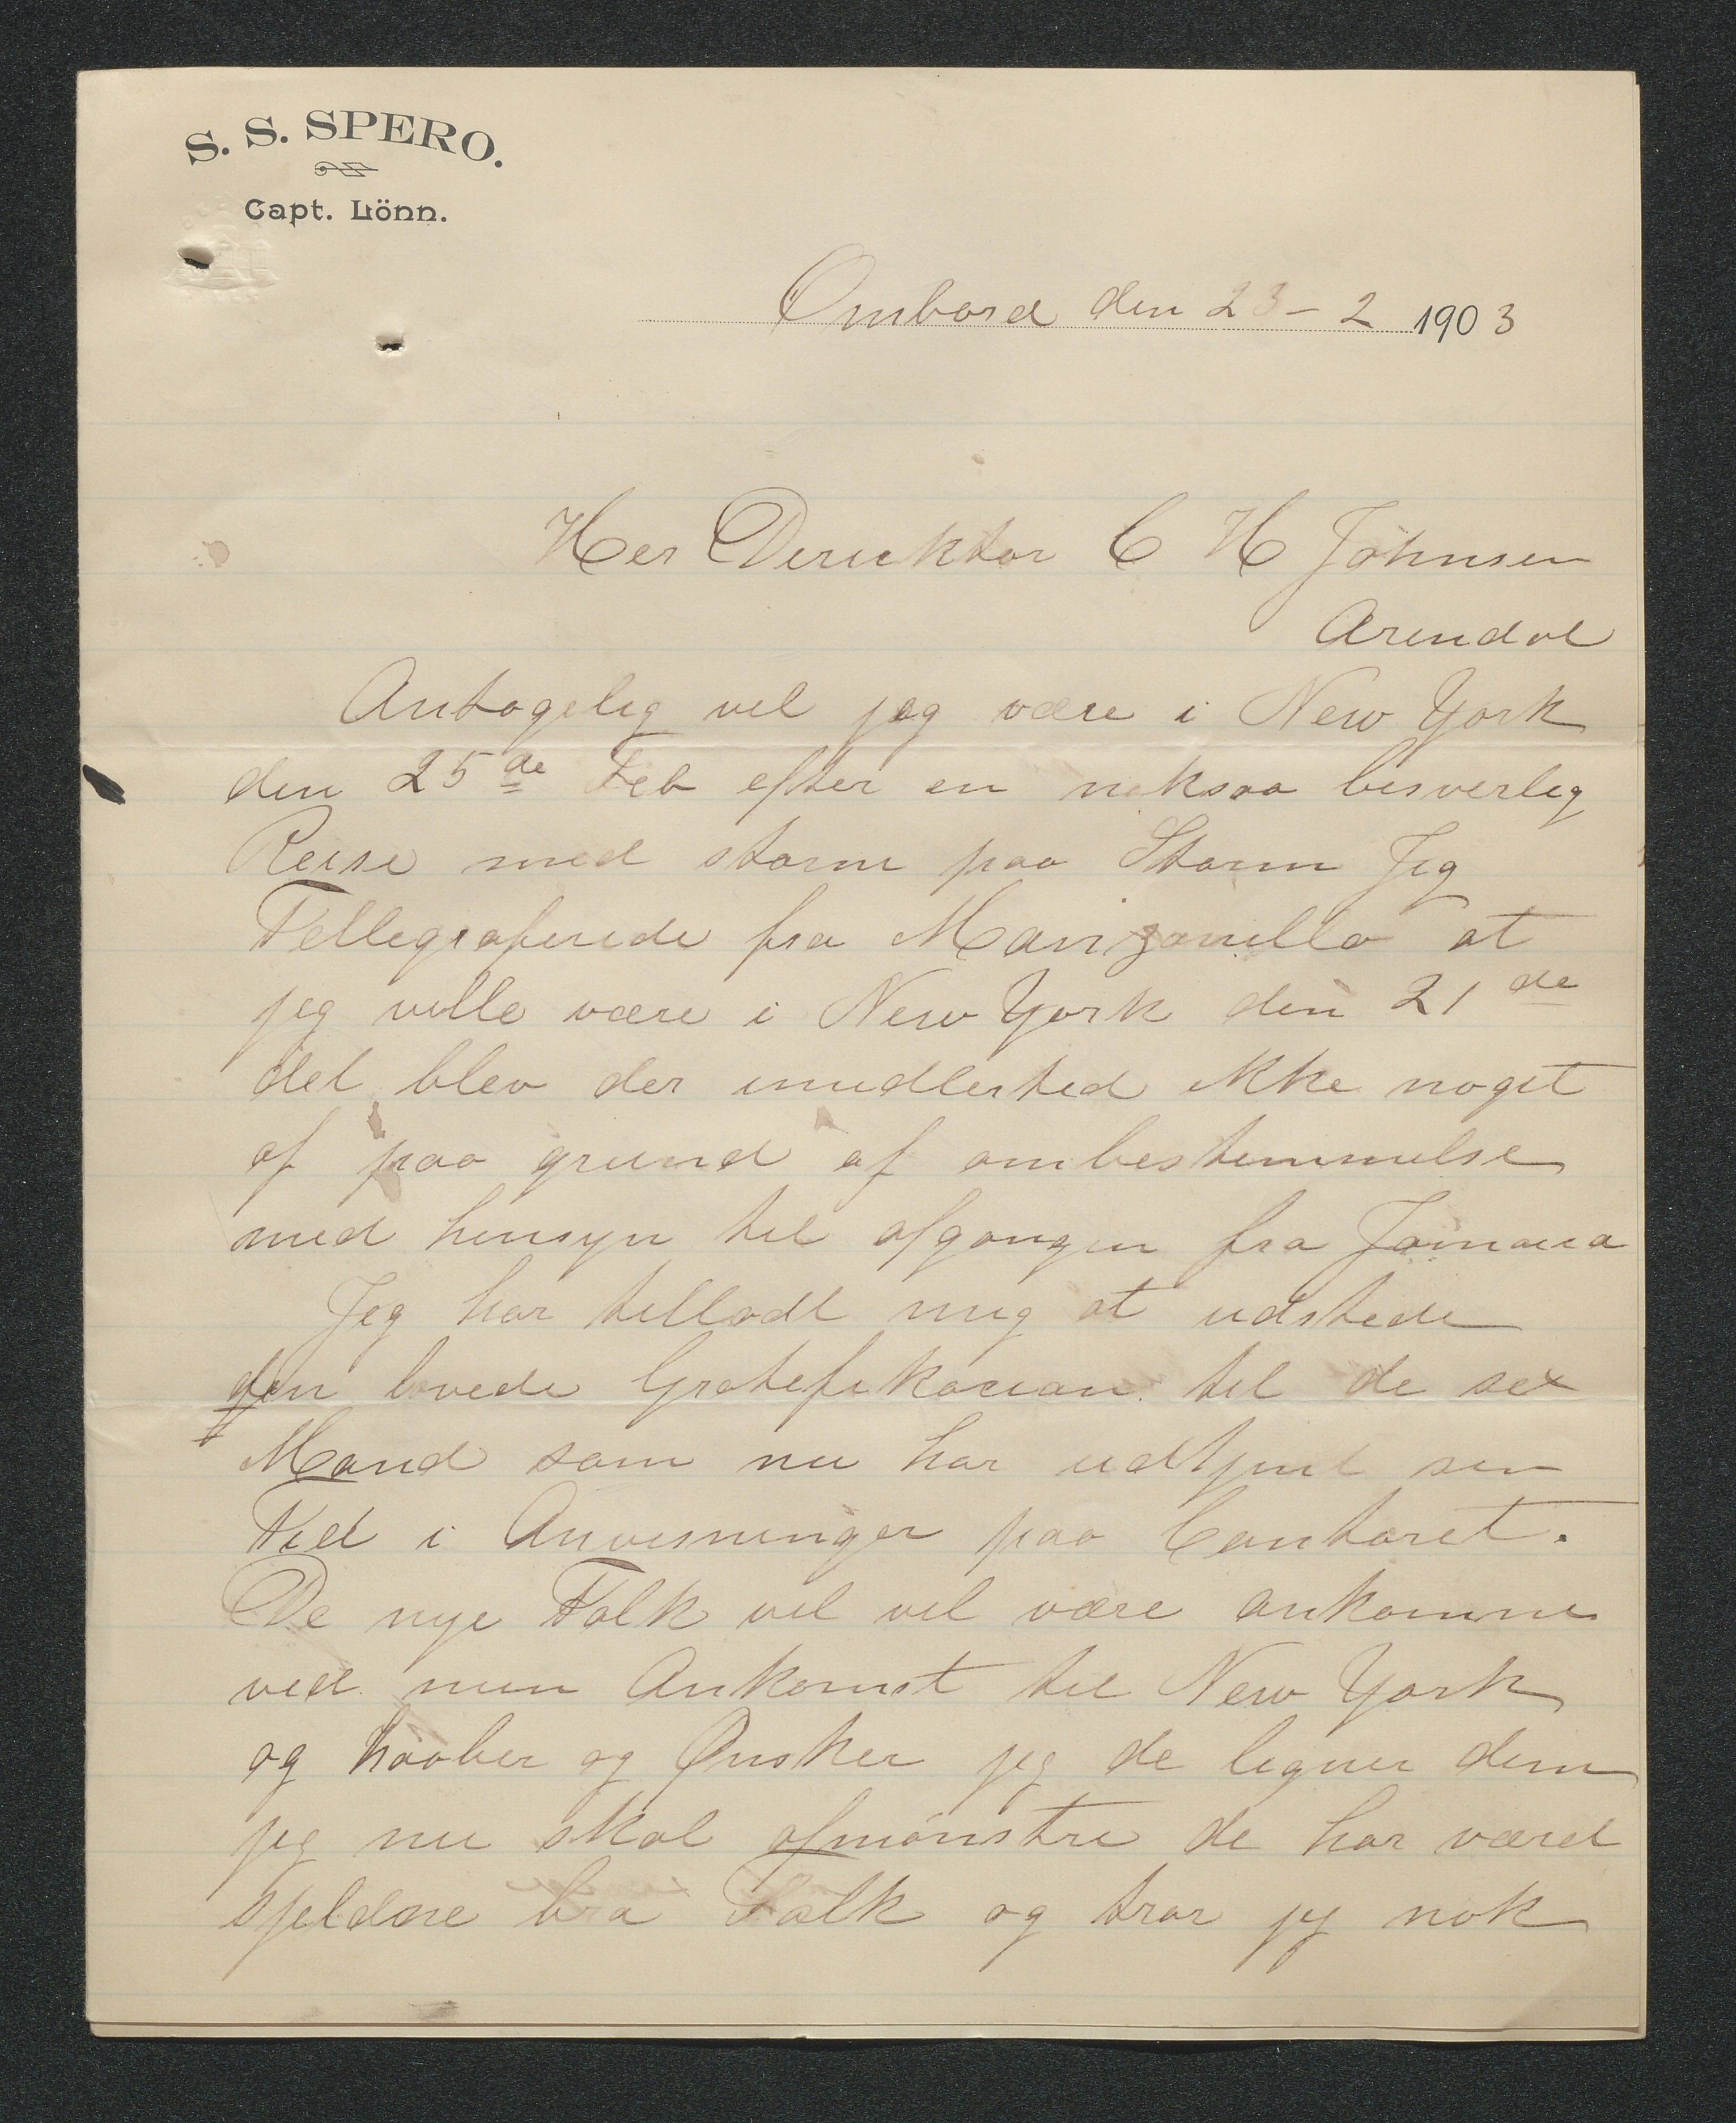 S. S. SPERO.
Capt. Lönn.
Ombord den 23-2 1903
Her Deriektor C H Johnsen
Arendal
Antagelig vil jeg være i New York
den 25de Feb efter en noksaa besverlig
Reise med storm paa Storm Jeg
Tellegraferede fra Manzanillo at
jeg ville være i New York den 21de
det blev der imidlertid ikke noget
af paa grund af ombestemmelse
med hensyn til afgangen fra Jamaica
Jeg har tilladt mig at udstede
den lovede Gratefikasion til de sex
Mand som nu har udtjent sin
Tid i Anvisninger paa Contoret.
De nye Folk vil vel være ankomne
ved min Ankomst til New York
og haaber og Ønsker jeg de ligner dem
jeg nu skal afmønstre de har været
sjeldne bra Folk og tror jeg nok